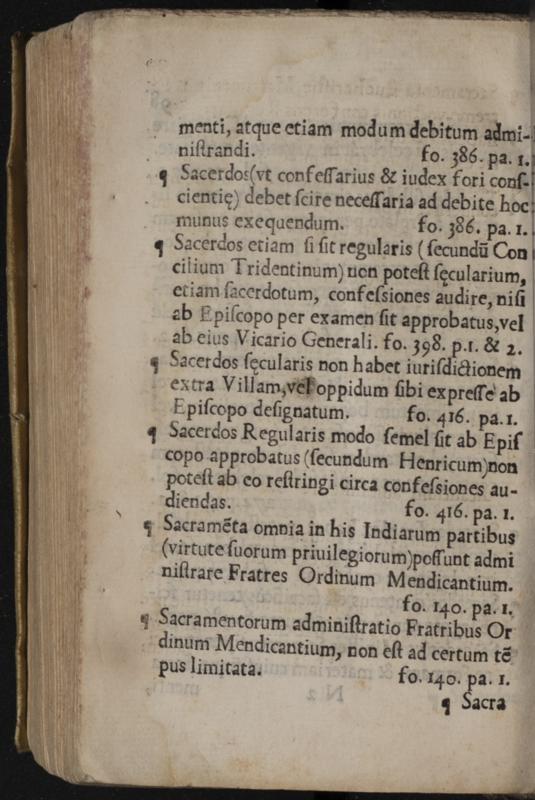 menti, atque etiam modum debitum admi-
niſtrandi. fo. 386. pa. 1.
¶ Sacerdos (vt confeſſarius & iudex fori conſ-
cientię) debet ſcire neceſſaria ad debite hoc
munus exequendum. fo. 386. pa. 1.
¶ Sacerdos etiam ſi ſit regularis (ſecundū Con
cilium Tridentinum) non poteſt ſęcularium,
etiam ſacerdotum, confeſsiones audire, niſi
ab Epiſcopo per examen ſit approbatus, vel
ab eius Vicario Generali. fo. 398. p.1. & 2.
¶ Sacerdos ſęcularis non habet iuriſdictionem
extra Villam, vel oppidum ſibi expreſſe ab
Epiſcopo deſignatum. fo. 416. pa. 1.
¶ Sacerdos Regularis modo ſemel ſit ab Epiſ
copo approbatus (ſecundum Henricum) non
poteſt ab eo reſtringi circa confeſsiones au-
diendas. fo. 416. pa. 1.
¶ Sacramēta omnia in his Indiarum partibus
(virtute ſuorum priuilegiorum) poſſunt admi
niſtrare Fratres Ordinum Mendicantium.
fo. 140. pa. 1.
¶ Sacramentorum adminiſtratio Fratribus Or
dinum Mendicantium, non eſt ad certum tē
pus limitata. fo. 140. pa. 1.
¶ Sacra